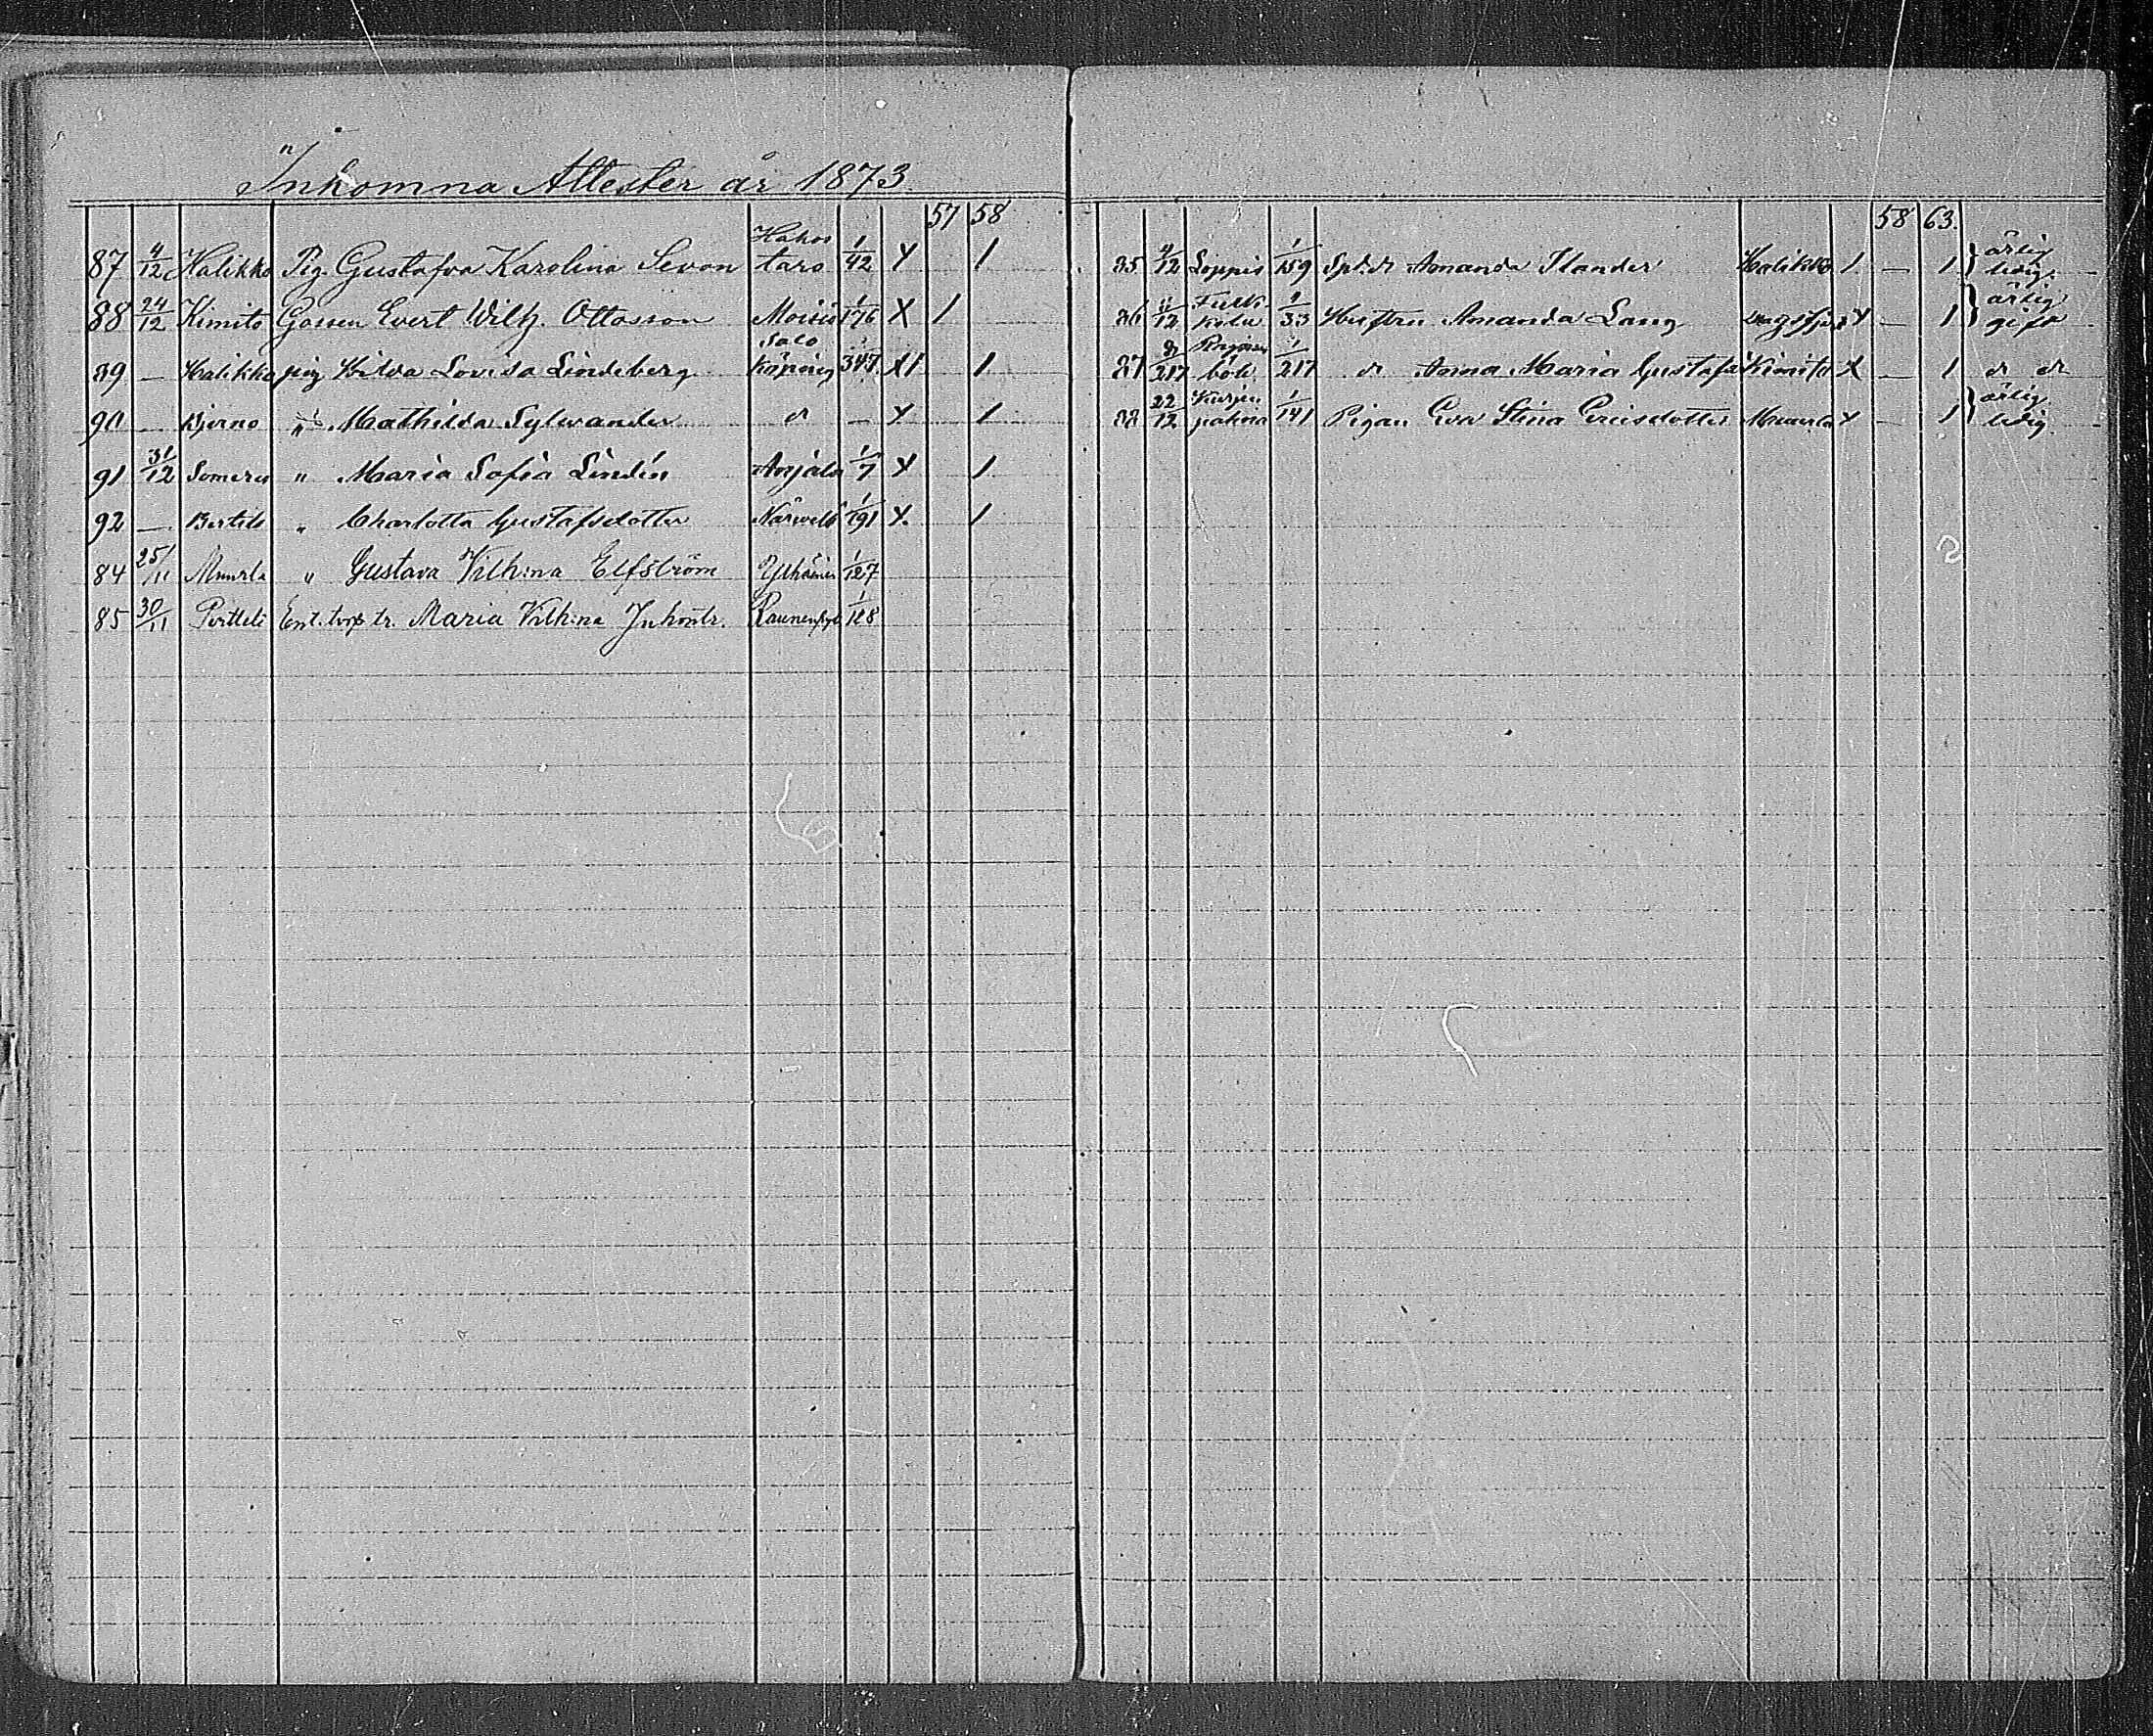 Inkomna Attester år 1873.
57 58
87 4/12 Halikko Pig. Gustafva Karolina Sevon Hakos taro 1/42 X 1
88 24/12 Kimito Gossen Evert Wilh. Ottosson Moisio 1/76 X 1
89 — Halikko pig Hilda Lovisa Lindeberg Salo Köping 347 X1 1
90 — Bjerno " Mathilda Sylvander d — X 1
91 31/12 Somero " Maria Sofia Lindén Anjala 1/7 X 1
92 — Bertils " Charlotta Gustafsdotter 1/191 X. 1
84 25/11 Muurla " Gustava Vilh:na Elfström 1/127
85 30/11 Pertteli Enl. torp. tr. Maria Vilh:na Juhontr. 1/128
58 63.
85 4/12 Loppis 1/159 d Amanda Ilander Halikko 1 — 1 } ärlig ledig.
86 11/12 1/33 Hustru Amanda Lang X — 1 } ärlig gift
87 böle 1/217 d Anna Maria Gustafsd Kimito X — 1 d d
88 22/12 1/141 Pigan Eva Stina Ericsdotter Muurla X — 1 } ärlig ledig.